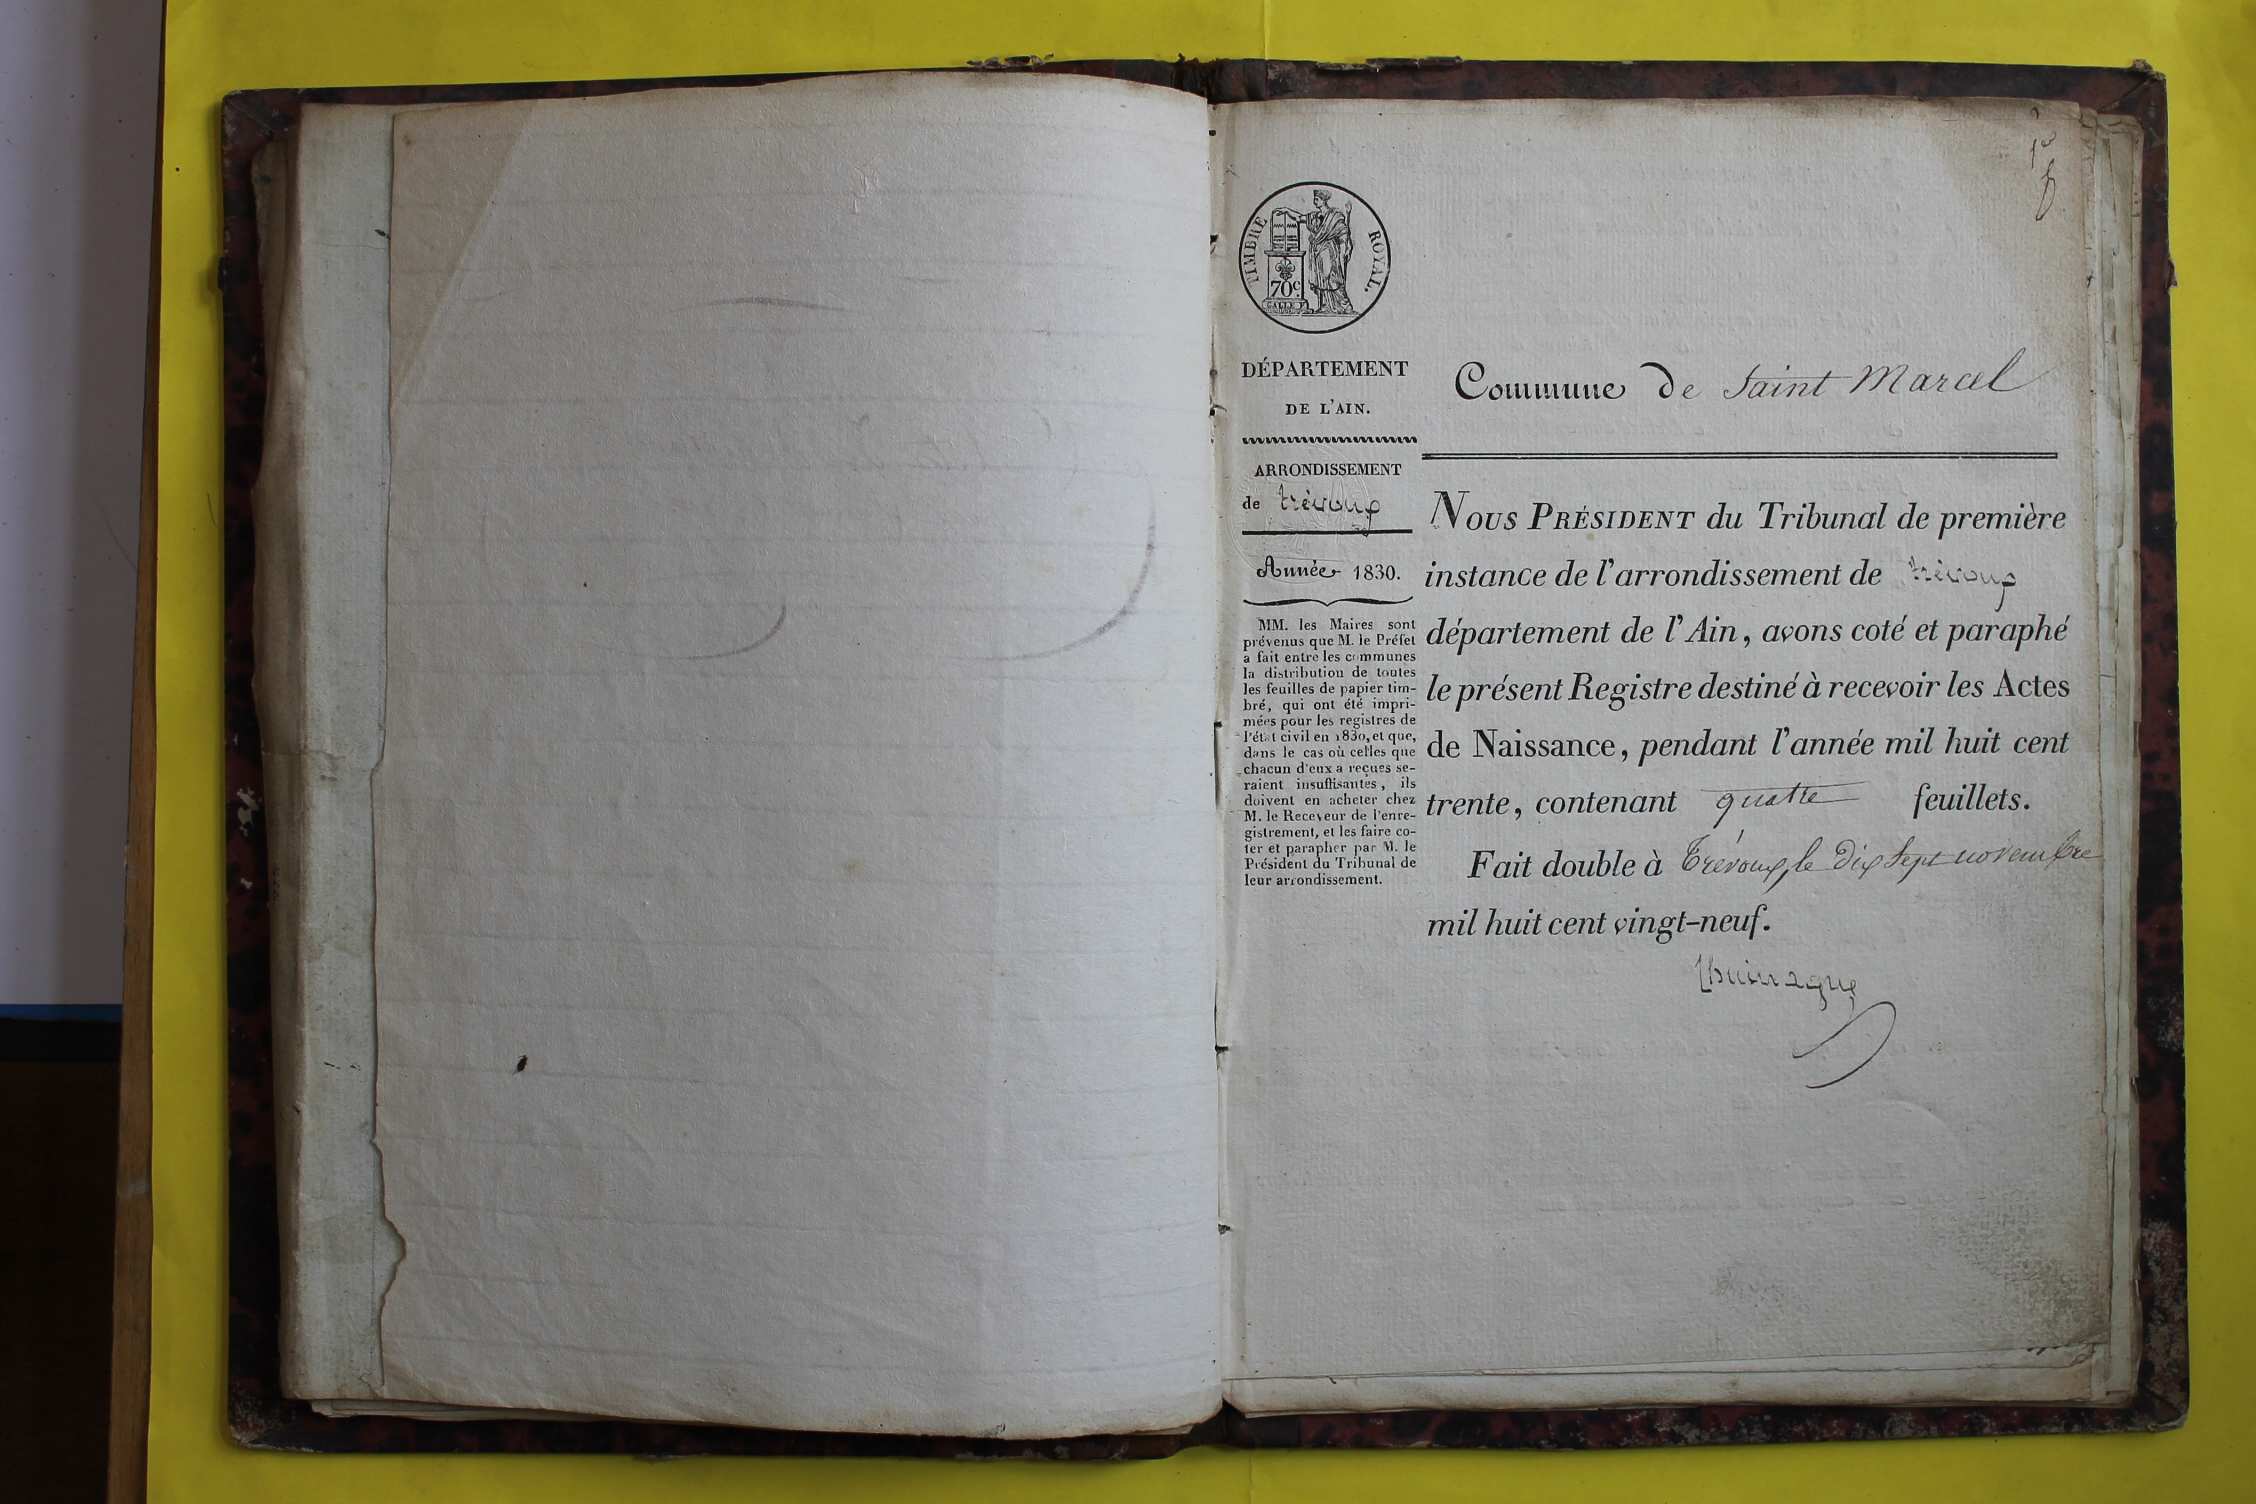 1er
TIMBRE ROYAL.
70c.
DÉPARTEMENT
DE L'AIN.
ARRONDISSEMENT
de trévoux
Année 1830.
MM. les Maires sont
prévenus que M. le Préfet
a fait entre les communes
la distribution de toutes
les feuilles de papier tim-
bré, qui ont été impri-
mées pour les registres de
l'état civil en 1830, et que,
dans le cas où celles que
chacun d'eux a reçues se-
raient insuffisantes, ils
doivent en acheter chez
M. le Receveur de l'enre-
gistrement, et les faire co-
ter et parapher par M. le
Président du Tribunal de
leur arrondissement.
Commune de Saint Marcel
NOUS PRÉSIDENT du Tribunal de première
instance de l'arrondissement de trévoux
département de l'Ain, avons coté et paraphé
le présent Registre destiné à recevoir les Actes
de Naissance, pendant l'année mil huit cent
trente, contenant quatre feuillets.
Fait double à Trévoux, le dix sept novembre
mil huit cent vingt-neuf.